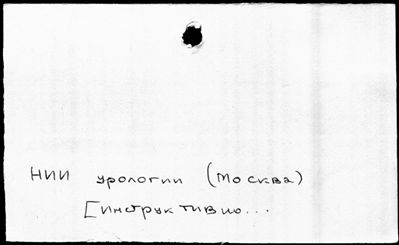 НИИ урологии (Москва)
[инструктивно...